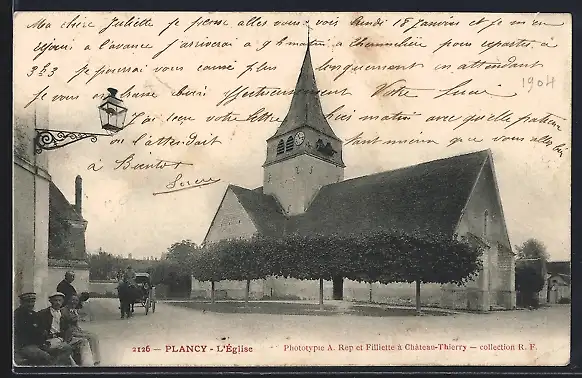 Ma chère Juliette je pense aller vous voir lundi 18 janvier et je m'en
réjouis a l'avance j'arriverai a 9h matin a pour repartir à
3h3 je pourrai vous causer plus longuement en attendant
je vous embrasse aussi affectueusement Votre Lucie
1904
J'ai reçu votre lettre hier matin avec quelle
on l'attendait tant moins que vous allez bien
à Bientôt
Lucie
2126 — PLANCY - L'Église
Phototypie A. Rep et Filliette à Château-Thierry — collection R. F.